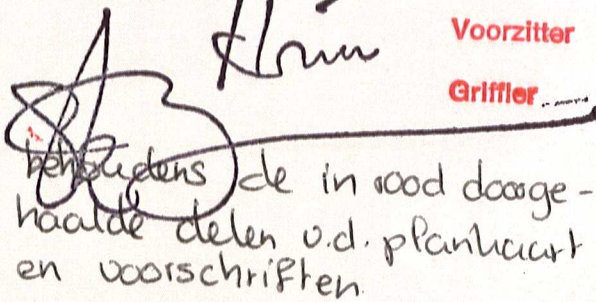 Voorzitter
Griffier
behoudens de in rood doorge-
haalde delen v.d. plankaart
en voorschriften.